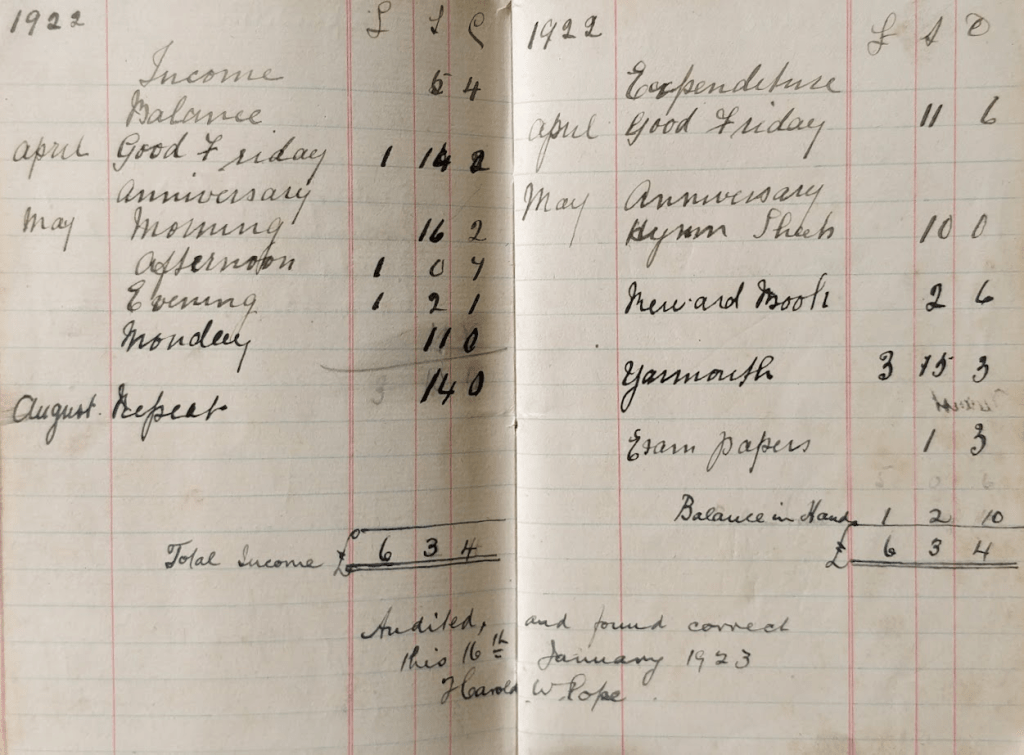 1922 £ s d
Income 5 4
Balance
April Good Friday 1 14 2
Anniversary
May Morning 16 2
Afternoon 1 0 7
Evening 1 2 1
Monday 11 0
14 0
August. Repeat
Total Income £ 6 3 4
1922 £ s d
Expenditure
April Good Friday 11 6
May Anniversary
Hymn Sheets 10 0
Reward Book 2 6
Yarmouth 3 15 3
Exam papers 1 3
Balance in Hand 1 2 10
£ 6 3 4
Audited, and found correct
this 16th January 1923
Harold W Pope